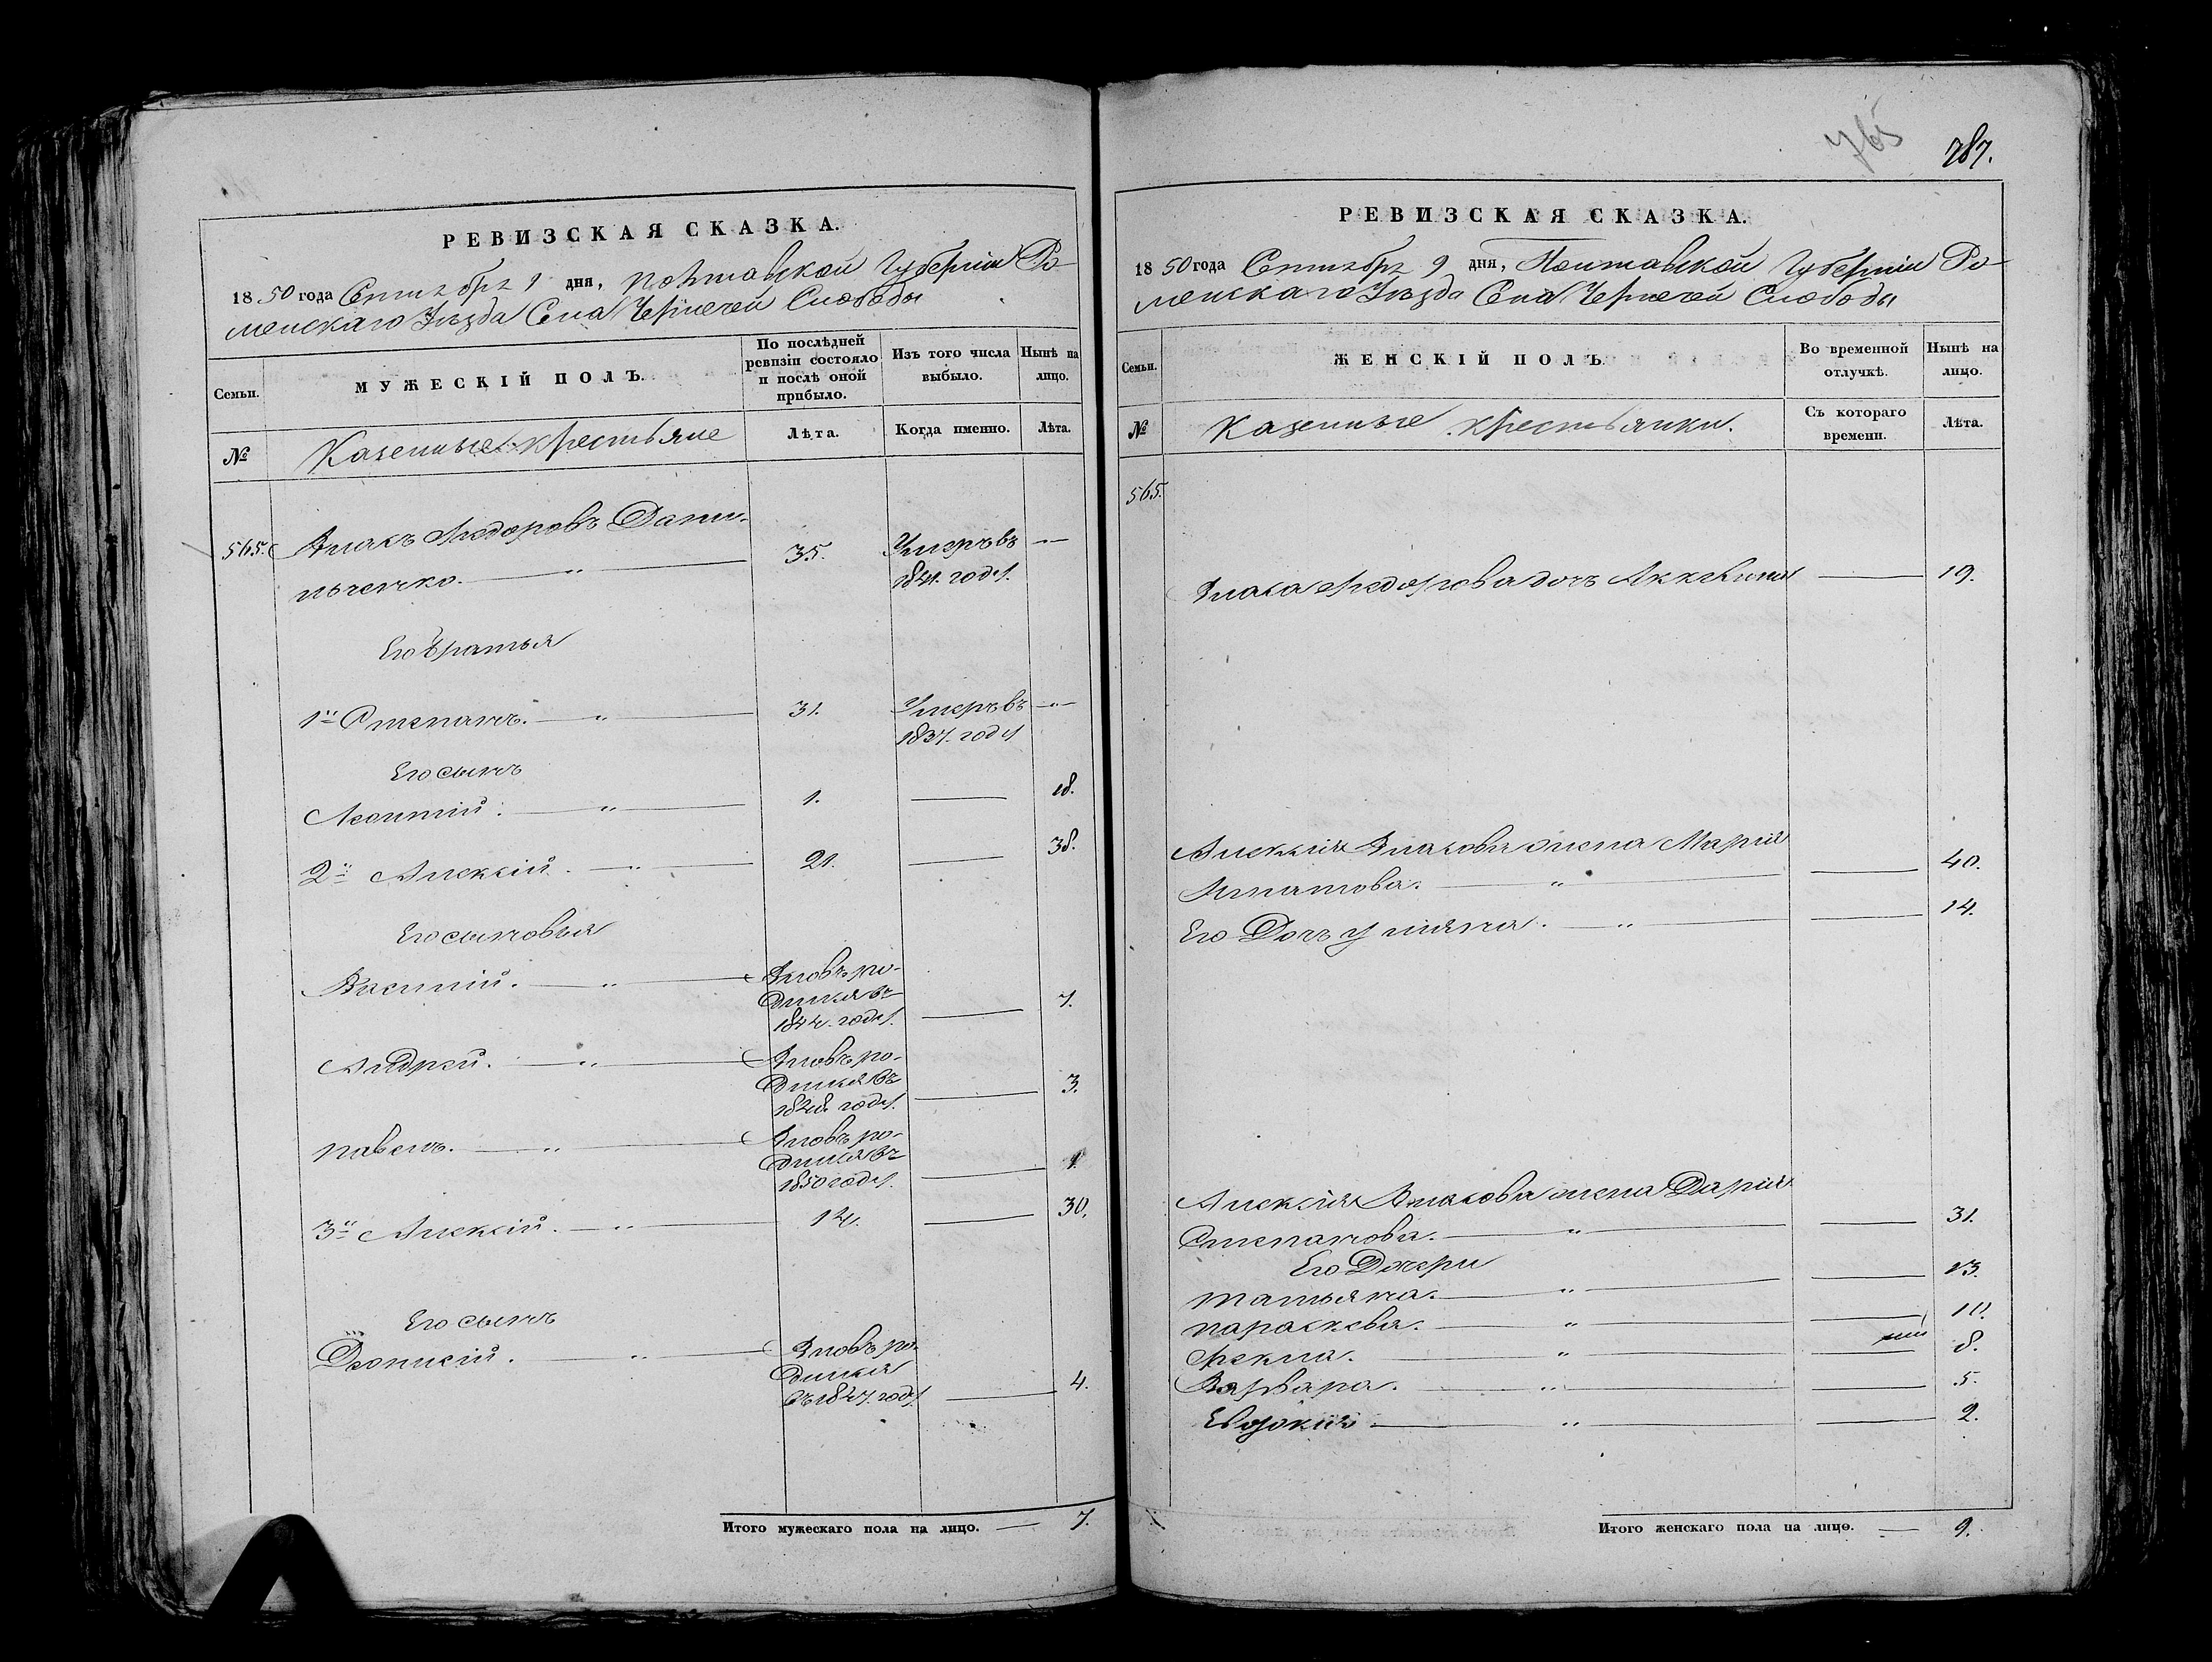 РЕВИЗСКАЯ СКАЗКА.
1850 года Сентября 9 дня, Полтавской Губернии Ро-
менскаго Уезда Села Чернечей Слободы
Семьи.
МУЖЕСКІЙ ПОЛЪ.
По послѣдней
ревизіи состояло
и послѣ оной
прибыло.
Изъ того числа
выбыло.
Нынѣ на
лицо.
№
Казенные крестьяне
Лѣта.
Когда именно.
Лѣта.
565.
Власъ Федоровъ Дани-
льченко. — " —
35.
Умеръ въ
1841. году.
Его братья
1й Степанъ. — " —
31.
Умеръ въ
1837. году
Его сынъ
Леонтій. — " —
1.
18.
2й Алексій. — " —
21.
38.
Его сыновья
Василий. — " —
Вновь ро-
дился въ
1844. году.
7.
Андрей. — " —
Вновь ро-
дился въ
1848 году.
3.
Павелъ. — " —
Вновь ро-
дился въ
1850 году.
1.
3й Алексій. — " —
14.
30.
Его сынъ
Деонисій. — " —
Вновь ро-
дился
въ 1847. году.
4.
Итого мужескаго пола на лицо. — 7.
765
787.
РЕВИЗСКАЯ СКАЗКА.
1850 года Сентября 9 дня, Полтавской Губернии Ро-
менскаго Уезда Села Чернечей Слободы
Семьи.
ЖЕНСКІЙ ПОЛЪ.
Во временной
отлучкѣ.
Нынѣ на
лицо.
№
Казенные крестьянки.
Съ котораго
времени.
Лѣта.
565.
Власа Федорова дочь — 19.
Алексія Власова жена Марія
Игнатова. — " — 40.
Его Дочь Уляна. — " — 14.
Алексія Власова жена Дарія
Степанова. — " — 31.
Его Дочери
Татьяна. — " — 13.
Параскева. — " — 10.
Фекла. — " — 8.
Варвара. — " — 5.
Евдокія — " — 2.
Итого женскаго пола на лицо. — 9.